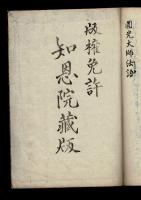 圓光大師法語
版權免許
知恩院藏版